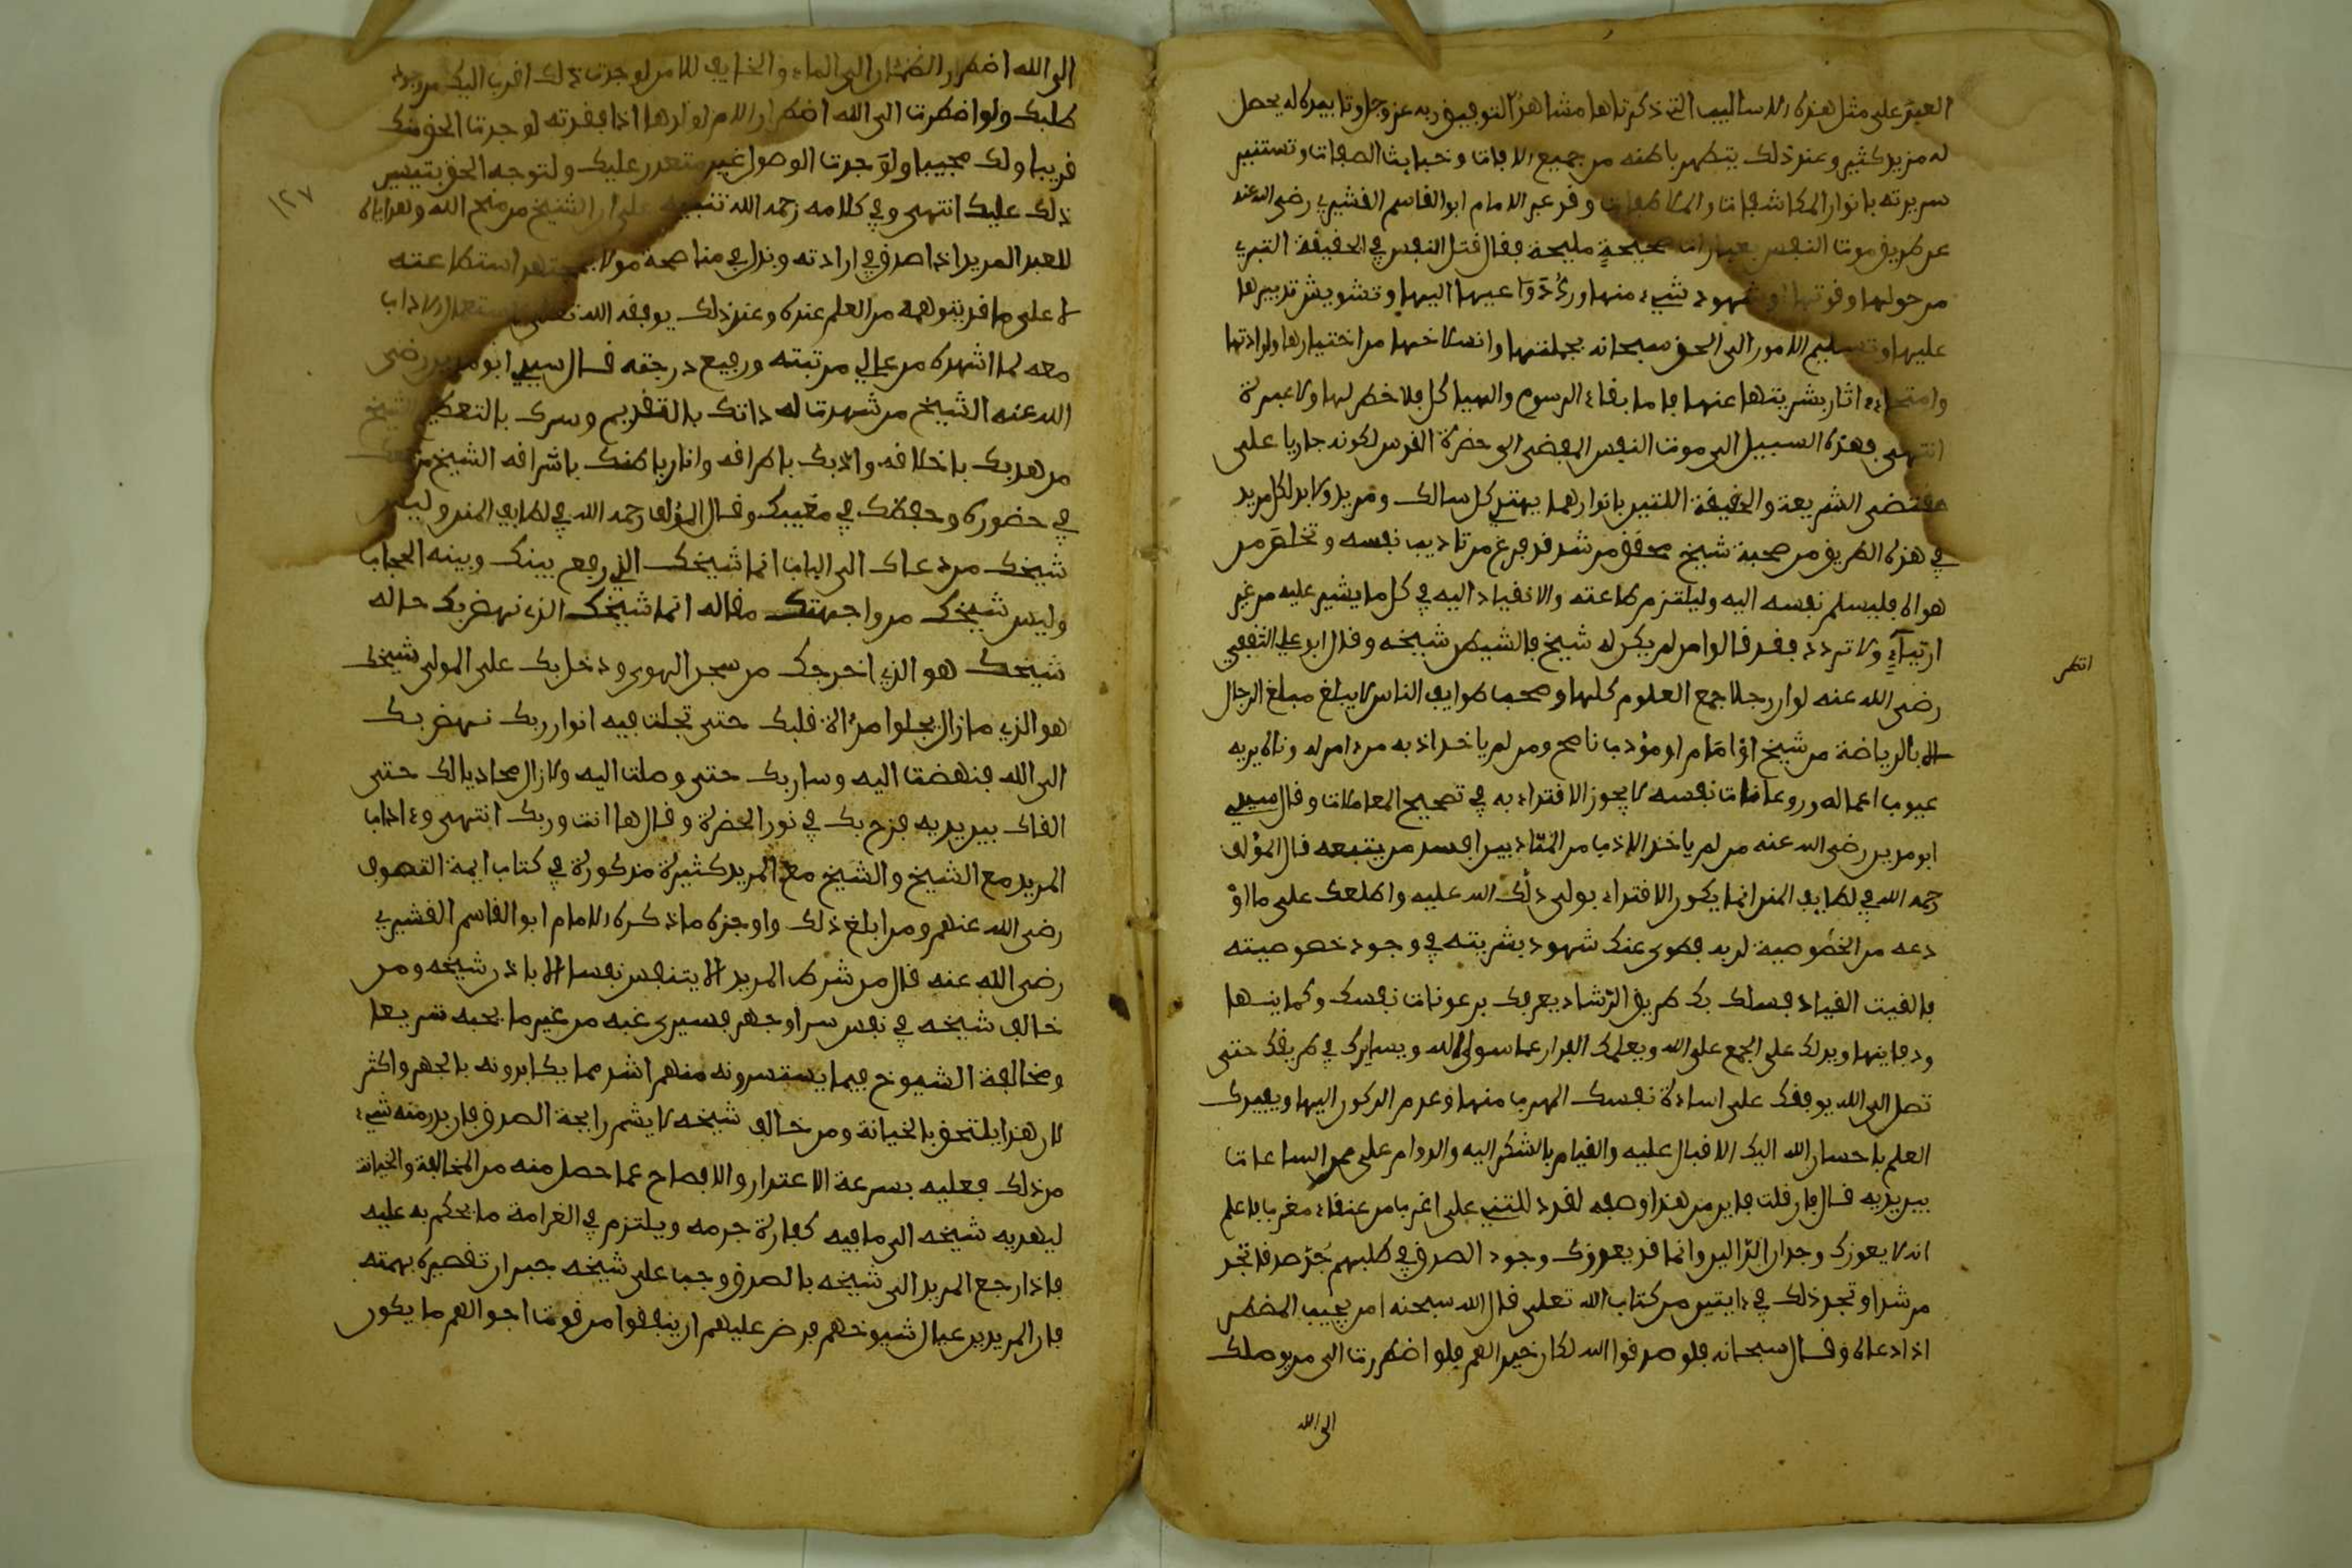 العبد على مثل هذه الاساليب التي ذكرناها مشاهدًا لتوفيق ربه عز وجل وتاييده له يحصل
له مزيد كثير وعند ذلك يتطهر باطنه من جميع الافات وخبايث الصفات وتستنير
سريرته بانوار المكاشفات والملاطفات وقد عبر الامام ابو القاسم القشيري رضي الله عنه
عن طريق موت النفس بعبارات صحيحةٍ مليحة فقال قتل النفس في الحقيقة التبري
من حولها وقوتها او شهود شيء منها ورد دَوَاعيها اليها وتشويش تدبيرها
عليها وتسليم الامور الى الحق سبحانه بجملتها وانسلاخها من اختيارها وارادتها
وامتحاء اثار بشريتها عنها فاما بقاء الرسوم والهياكل فلا خطر لها ولا عبرة
انتهى فهذه السبيل الى موت النفس المفضي الى حضرة القدس لكونه جاريا على
مقتضى الشريعة والحقيقة اللتين بانوارهما يهتدي كل سالك ومريد ولا بد لكل مريد
في هذه الطريق من صحبة شيخ محقق مرشد قد فرغ من تاديب نفسه وتخلص من
هواه فليسلم نفسه اليه وليلتزم طاعته والانقياد اليه في كل ما يشير عليه من غير
ارتيآءٍ ولا تردد فقد قالوا من لم يكن له شيخ فالشيطن شيخه وقال ابو علي الثقفي
رضي الله عنه لو ان رجلا جمع العلوم كلها وصحب طوايف الناس لا يبلغ مبلغ الرجال
الا بالرياضة من شيخ اوْ امَام او مؤدب ناصح ومن لم ياخذ ادبه من امر له وناه يريه
عيوب اعماله ورعونات نفسه لا يجوز الاقتداء به في تصحيح المعاملات وقال سيدي
ابو مدين رضي الله عنه من لم ياخذ الادب من المتادبين افسد من يتبعه قال المؤلف
رحمه الله في لطايف المنن انما يكون الاقتداء بولي دلّك الله عليه واطلعك على ما اوْ
دعه من الخصُوصية لديه فطوى عنك شهود بشريته في وجود خصوصيته
فالقيت القياد فسلك بك طريق الرّشاد يعرفك برعونات نفسك وكماينها
ودفاينها ويدلك على الجمع على الله ويعلمك الفرار عما سوى الله ويسايرك في طريقك حتى
تصل الى الله يوقفك على اساءة نفسك الهرب منها وعدم الركون اليها ويفيدك
العلم باحسان الله اليك الاقبال عليه والقيام بالشكر اليه والدوام على ممر الساعات
بين يديه قال فان قلت فاين من هذا وصفه لقد دللتني على اغرب من عنقاء مغرب فاعلم
انه لا يعوزك وجدان الدّالين وانما قد يعوزك وجود الصدق في طلبهم جُدّ صدقا تجد
مرشدا وتجد ذلك في ايتين من كتاب الله تعلى قال الله سبحنه امن يجيب المضطر
اذا دعاه وقال سبحانه فلو صدقوا الله لكان خيرا لهم فلو اضطررت الى من يوصلك
الى الله
انظر
الى الله اضطرار الظمئان الى الماء والخايف للامن لوجدت ذلك اقرب اليك من وجود
طلبك ولو اضطررت الى الله اضطرار الام لولدها اذا فقدته لوجدت الحق منك
قريبا ولك مجيبا ولوَجدت الوصول غير متعذر عليك ولتوجه الحق بتيسير
ذلك عليك انتهى وفي كلامه رحمه الله تنبيه على ان الشيخ من منح الله وهداياه
للعبد المريد اذا صدق في ارادته وبذل في مناصحة مولاه جهد استطاعته
لا على ما قد يتوهمه من العلم عنده وعند ذلك يوفقه الله تعلى لاستعمال الاداب
معه لما اشهده من عالي مرتبته ورفيع درجته قال سيدي ابو مدين رضي
الله عنه الشيخ من شهدت له ذاتك بالتقديم وسرك بالتعظيم الشيخ
من هذبك باخلاقه وادّبك باطراقه وانار باطنك باشراقه الشيخ من جمعك
في حضوره وحفظك في مغيبك وقال المؤلف رحمه الله في لطايف المنن وليس
شيخك من دعاك الى الباب انما شيخك الذي رفع بينك وبينه الحجاب
وليس شيخك من واجهتك مقاله انما شيخك الذي نهض بك حاله
شيخك هو الذي اخرجك من سجن الهوى ودخل بك على المولى شيخك
هو الذي ما زال يجلوا مرءاة قلبك حتى تجلت فيه انوار ربك نهض بك
الى الله فنهضت اليه وسار بك حتى وصلت اليه ولا زال محاذيا لك حتى
القاك بين يديه فزج بك في نور الحضرة وقال ها انت وربك انتهى وءاداب
المريد مع الشيخ والشيخ مع المريد كثيرة مذكورة في كتاب ايمة التصوف
رضي الله عنهم ومن ابلغ ذلك واوجزه ما ذكره الامام ابو القاسم القشيري
رضي الله عنه قال من شرط المريد الا يتنفس نفسا الا باذن شيخه ومن
خالف شيخه في نفس سرا او جهر فسيرى غبه من غير ما يحبه سريعا
ومخالفة الشيوخ فيما يستسرونه منهم اشد مما يكابرونه بالجهر واكثر
لان هذا يلتحق بالخيانة ومن خالف شيخه لا يشم رايحة الصدق فان بدر منه شيء
من ذلك فعليه بسرعة الاعتذار والافصاح عما حصل منه من المخالفة والخيانة
ليهديه شيخه الى ما فيه كفارة جرمه ويلتزم في الغرامة ما يحكم به عليه
فاذا رجع المريد الى شيخه بالصدق وجب على شيخه جبران تقصيره بهمته
فان المريدين عيال شيوخهم فرض عليهم ان ينفقوا من قوت احوالهم ما يكون
١٢٧